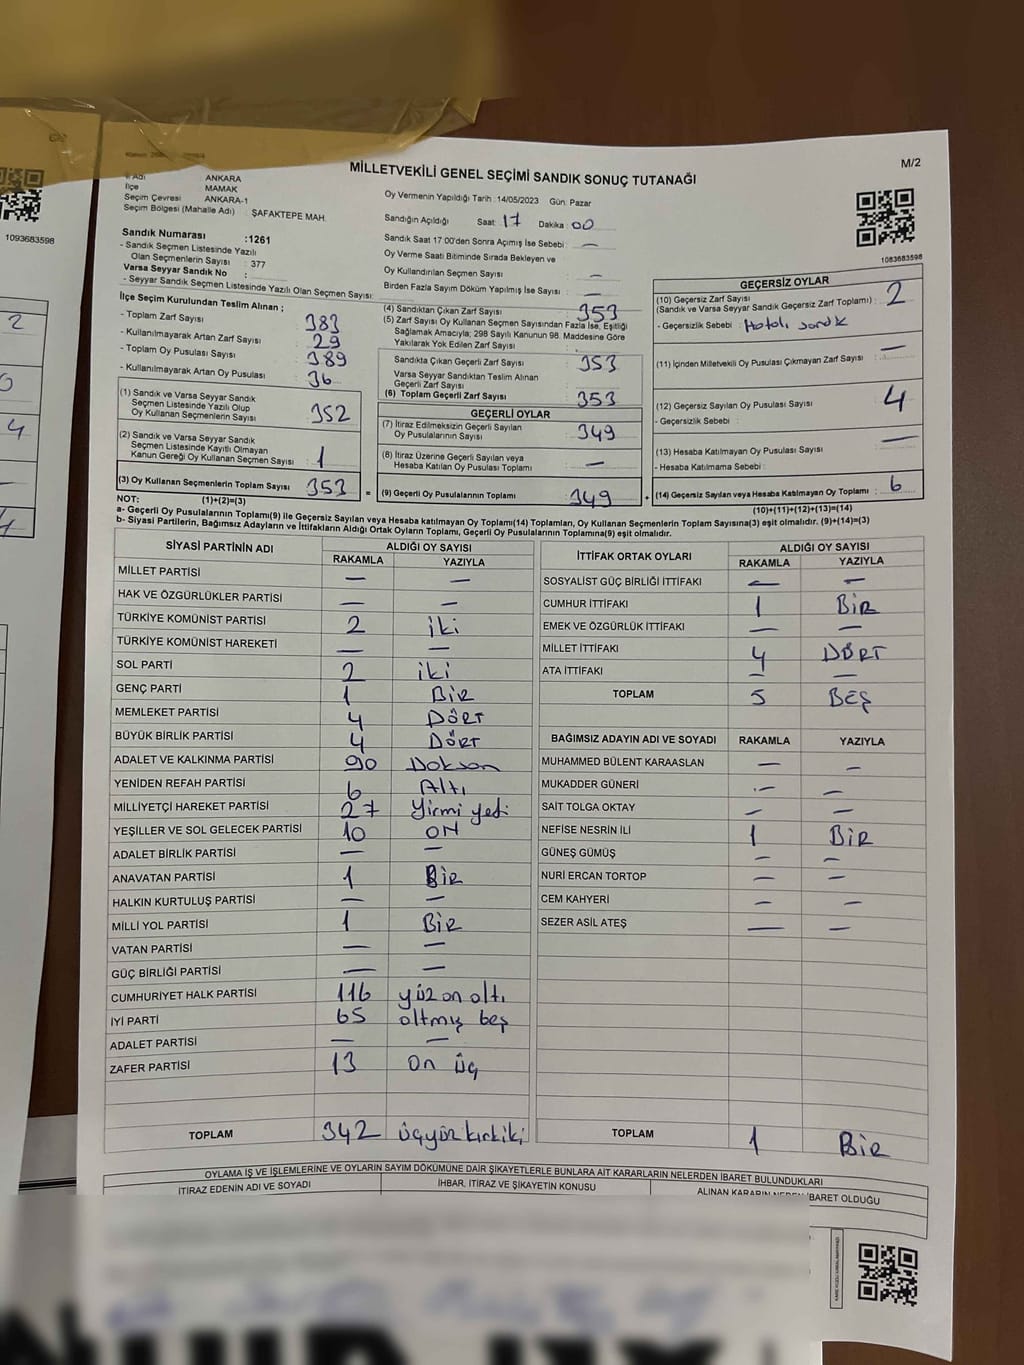 M/2
MİLLETVEKİLİ GENEL SEÇİMİ SANDIK SONUÇ TUTANAĞI
İl Adı ANKARA
İlçe MAMAK
Seçim Çevresi ANKARA-1
Seçim Bölgesi (Mahalle Adı) : ŞAFAKTEPE MAH.
Oy Vermenin Yapıldığı Tarih : 14/05/2023 Gün: Pazar
Sandığın Açıldığı Saat: 17 Dakika: 00
1093683598
1083683598
Sandık Numarası :1261
- Sandık Seçmen Listesinde Yazılı
Olan Seçmenlerin Sayısı : 377
Varsa Seyyar Sandık No :
- Seyyar Sandık Seçmen Listesinde Yazılı Olan Seçmen Sayısı:
Sandık Saat 17 00'den Sonra Açımış İse Sebebi : —
Oy Verme Saati Bitiminde Sırada Bekleyen ve
Oy Kullandırılan Seçmen Sayısı : —
Birden Fazla Sayım Döküm Yapılmış İse Sayısı : —
İlçe Seçim Kurulundan Teslim Alınan ;
- Toplam Zarf Sayısı : 383
- Kullanılmayarak Artan Zarf Sayısı : 29
- Toplam Oy Pusulası Sayısı : 389
- Kullanılmayarak Artan Oy Pusulası : 36
(1) Sandık ve Varsa Seyyar Sandık
Seçmen Listesinde Yazılı Olup
Oy Kullanan Seçmenlerin Sayısı : 352
(2) Sandık ve Varsa Seyyar Sandık
Seçmen Listesinde Kayıtlı Olmayan
Kanun Gereği Oy Kullanan Seçmen Sayısı : 1
(3) Oy Kullanan Seçmenlerin Toplam Sayısı : 353
(4) Sandıktan Çıkan Zarf Sayısı : 353
(5) Zarf Sayısı Oy Kullanan Seçmen Sayısından Fazla İse, Eşitliği
Sağlamak Amacıyla; 298 Sayılı Kanunun 98. Maddesine Göre
Yakılarak Yok Edilen Zarf Sayısı :
Sandıkta Çıkan Geçerli Zarf Sayısı : 353
Varsa Seyyar Sandıktan Teslim Alınan
Geçerli Zarf Sayısı :
(6) Toplam Geçerli Zarf Sayısı : 353
GEÇERLİ OYLAR
(7) İtiraz Edilmeksizin Geçerli Sayılan
Oy Pusulalarının Sayısı : 349
(8) İtiraz Üzerine Geçerli Sayılan veya
Hesaba Katılan Oy Pusulası Toplamı : —
= (9) Geçerli Oy Pusulalarının Toplamı : 349
GEÇERSİZ OYLAR
(10) Geçersiz Zarf Sayısı :
(Sandık ve Varsa Seyyar Sandık Geçersiz Zarf Toplamı) : 2
- Geçersizlik Sebebi : Hatalı sandık
(11) İçinden Milletvekili Oy Pusulası Çıkmayan Zarf Sayısı : —
(12) Geçersiz Sayılan Oy Pusulası Sayısı : 4
- Geçersizlik Sebebi :
(13) Hesaba Katılmayan Oy Pusulası Sayısı : —
- Hesaba Katılmama Sebebi :
+ (14) Geçersiz Sayılan veya Hesaba Katılmayan Oy Toplamı : 6
NOT: (1)+(2)=(3)
(10)+(11)+(12)+(13)=(14)
a- Geçerli Oy Pusulalarının Toplamı(9) ile Geçersiz Sayılan veya Hesaba katılmayan Oy Toplamı(14) Toplamları, Oy Kullanan Seçmenlerin Toplam Sayısına(3) eşit olmalıdır. (9)+(14)=(3)
b- Siyasi Partilerin, Bağımsız Adayların ve İttifakların Aldığı Ortak Oyların Toplamı, Geçerli Oy Pusulalarının Toplamına(9) eşit olmalıdır.
SİYASİ PARTİNİN ADI ALDIĞI OY SAYISI
RAKAMLA YAZIYLA
MİLLET PARTİSİ — —
HAK VE ÖZGÜRLÜKLER PARTİSİ — —
TÜRKİYE KOMÜNİST PARTİSİ 2 iki
TÜRKİYE KOMÜNİST HAREKETİ — —
SOL PARTİ 2 iki
GENÇ PARTİ 1 BİR
MEMLEKET PARTİSİ 4 DÖRT
BÜYÜK BİRLİK PARTİSİ 4 DÖRT
ADALET VE KALKINMA PARTİSİ 90 Doksan
YENİDEN REFAH PARTİSİ 6 Altı
MİLLİYETÇİ HAREKET PARTİSİ 27 Yirmi yedi
YEŞİLLER VE SOL GELECEK PARTİSİ 10 ON
ADALET BİRLİK PARTİSİ — —
ANAVATAN PARTİSİ 1 BİR
HALKIN KURTULUŞ PARTİSİ — —
MİLLİ YOL PARTİSİ 1 BİR
VATAN PARTİSİ — —
GÜÇ BİRLİĞİ PARTİSİ — —
CUMHURİYET HALK PARTİSİ 116 yüz on altı
İYİ PARTİ 65 altmış beş
ADALET PARTİSİ — —
ZAFER PARTİSİ 13 on üç
TOPLAM 342 üçyüz kırkiki
İTTİFAK ORTAK OYLARI ALDIĞI OY SAYISI
RAKAMLA YAZIYLA
SOSYALİST GÜÇ BİRLİĞİ İTTİFAKI — —
CUMHUR İTTİFAKI 1 BİR
EMEK VE ÖZGÜRLÜK İTTİFAKI — —
MİLLET İTTİFAKI 4 DÖRT
ATA İTTİFAKI — —
TOPLAM 5 BEŞ
BAĞIMSIZ ADAYIN ADI VE SOYADI RAKAMLA YAZIYLA
MUHAMMED BÜLENT KARAASLAN — —
MUKADDER GÜNERİ — —
SAİT TOLGA OKTAY — —
NEFİSE NESRİN İLİ 1 BİR
GÜNEŞ GÜMÜŞ — —
NURİ ERCAN TORTOP — —
CEM KAHYERİ — —
SEZER ASİL ATEŞ — —
TOPLAM 1 BİR
OYLAMA İŞ VE İŞLEMLERİNE VE OYLARIN SAYIM DÖKÜMÜNE DAİR ŞİKAYETLERLE BUNLARA AİT KARARLARIN NELERDEN İBARET BULUNDUKLARI
İTİRAZ EDENİN ADI VE SOYADI İHBAR, İTİRAZ VE ŞİKAYETİN KONUSU ALINAN KARARIN NEDEN İBARET OLDUĞU